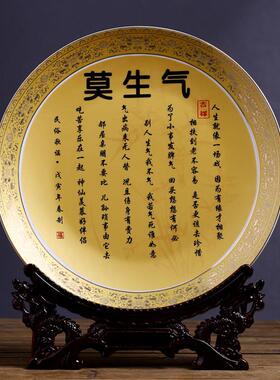 莫生气
吉祥
人生就像一场戏 因为有缘才相聚
相扶到老不容易 是否更该去珍惜
为了小事发脾气 回头想想有何必
别人生气我不气 我若气死谁如意
气出病来无人替 况且伤身有费力
邻居亲朋不要比 儿孙琐事由它去
吃苦享乐在一起 神仙羡慕好伴侣
民俗歌谣 戊寅年